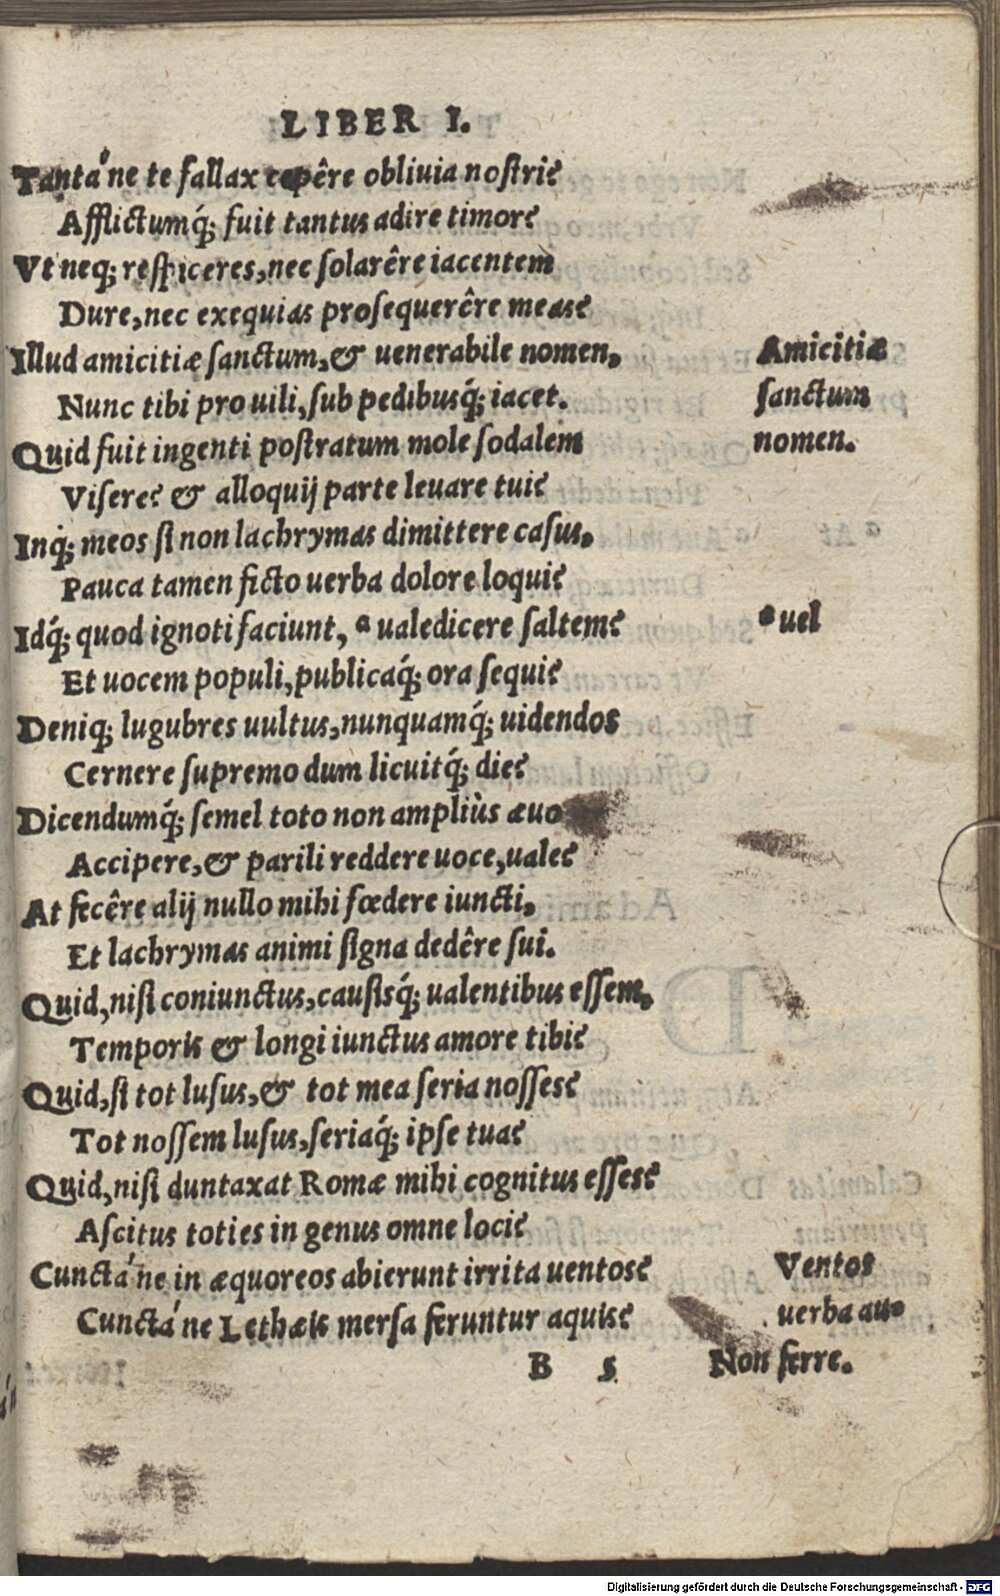 LIBER I.
Tantáne te fallax cepêre obliuia nostri?
Afflictumq́; fuit tantus adire timor?
Vt neq; respiceres, nec solarêre iacentem
Dure, nec exequias prosequerêre meas?
Illud amicitiæ sanctum, & uenerabile nomen,
Amicitiæ
Nunc tibi pro uili, sub pedibusq́; iacet.
sanctum
Quid fuit ingenti postratum mole sodalem
nomen.
Visere? & alloquij parte leuare tui?
Inq́; meos si non lachrymas dimittere casus,
Pauca tamen ficto uerba dolore loqui?
Idq́; quod ignoti faciunt, ᵃ ualedicere saltem?
ᵃ uel
Et uocem populi, publicaq́; ora sequi?
Deniq; lugubres uultus, nunquamq́; uidendos
Cernere supremo dum licuitq́; die?
Dicendumq́; semel toto non ampliùs æuo
Accipere, & parili reddere uoce, uale?
At fecêre alij nullo mihi fœdere iuncti,
Et lachrymas animi signa dedêre sui.
Quid, nisi coniunctus, causisq́; ualentibus essem,
Temporis & longi iunctus amore tibi?
Quid, si tot lusus, & tot mea seria nosses?
Tot nossem lusus, seriaq́; ipse tua?
Quid, nisi duntaxat Romæ mihi cognitus esses?
Ascitus toties in genus omne loci?
Cunctáne in æquoreos abierunt irrita uentos?
Ventos
Cunctáne Lethæis mersa feruntur aquis?
uerba au-
B 5 Non
ferre.
Digitalisierung gefördert durch die Deutsche Forschungsgemeinschaft - DFG